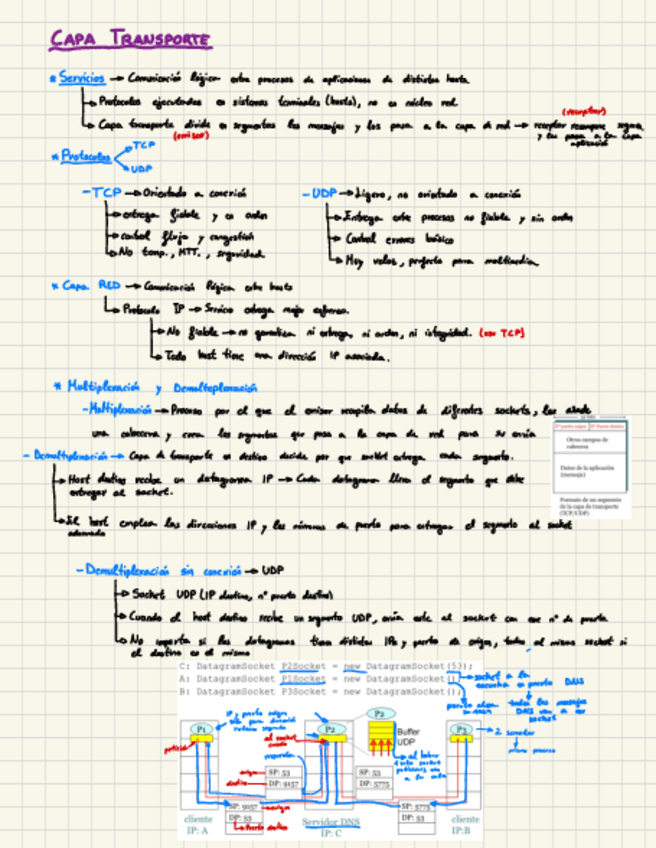 CAPA TRANSPORTE
* Servicios → Comunicación lógica entre procesos de aplicaciones de distintos hosts.
→ Protocolos ejecutados en sistemas terminales (hosts), no en núcleo red.
(receptor)
→ Capa transporte divide en segmentos los mensajes y los pasa a la capa de red → receptor recompone segm.
(emisor)
y los pasa a la capa
aplicación
* Protocolos
TCP
UDP
- TCP → Orientado a conexión
→ entrega fiable y en orden
→ control flujo y congestión
→ No temp., MTT., seguridad.
- UDP → Ligero, no orientado a conexión
→ Entrega entre procesos no fiable y sin orden
→ Control errores básico
→ Muy veloz, perfecto para multimedia
* Capa RED → Comunicación lógica entre hosts
→ Protocolo IP → Servicio entrega mejor esfuerzo.
→ No fiable → no garantiza ni entrega, ni orden, ni integridad. (uso TCP)
→ Todo host tiene una dirección IP asociada.
* Multiplexación y Demultiplexación
- Multiplexación → Proceso por el que el emisor recopila datos de diferentes sockets, les añade
una cabecera y crea los segmentos que pasa a la capa de red para su envío
Nº puerto origen Nº Puerto destino
Otros campos de
cabecera
Datos de la aplicación
(mensaje)
Formato de un segmento
de la capa de transporte
(TCP/UDP)
- Demultiplexación → Capa de transporte en destino decide por que socket entrega cada segmento.
→ Host destino recibe un datagrama IP → Cada datagrama lleva el segmento que debe
entregar al socket.
→ El host emplea las direcciones IP y los números de puerto para entregar el segmento al socket
adecuado
- Demultiplexación sin conexión → UDP
→ Socket UDP (IP destino, nº puerto destino)
→ Cuando el host destino recibe un segmento UDP, envía este al socket con ese nº de puerto
→ No importa si los datagramas tienen distintas IPs y puerto de origen, todos al mismo socket si
el destino es el mismo
C: DatagramSocket P2Socket = new DatagramSocket(53);
A: DatagramSocket P1Socket = new DatagramSocket();
B: DatagramSocket P3Socket = new DatagramSocket();
socket a la
escucha en puerto DNS
todos los mensajes
DNS van a ese
socket
P1
P2
P2
Buffer
UDP
P3
petición
origen
destino
SP: 53
DP: 9157
SP: 53
DP: 5775
SP: 9157
DP: 53
origen
Puerto destino
SP: 5775
DP: 53
cliente
IP: A
Servidor DNS
IP: C
cliente
IP:B